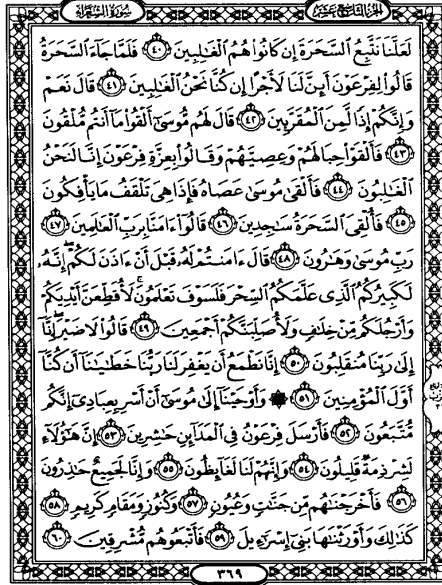 الجزء التاسع عشر
سورة الشعراء
لَعَلَّنَا نَتَّبِعُ السَّحَرَةَ إِن كَانُوا۟ هُمُ الْغَٰلِبِينَ ﴿٤٠﴾ فَلَمَّا جَآءَ السَّحَرَةُ
قَالُوا۟ لِفِرْعَوْنَ أَئِنَّ لَنَا لَأَجْرًا إِن كُنَّا نَحْنُ الْغَٰلِبِينَ ﴿٤١﴾ قَالَ نَعَمْ
وَإِنَّكُمْ إِذًا لَّمِنَ الْمُقَرَّبِينَ ﴿٤٢﴾ قَالَ لَهُم مُّوسَىٰٓ أَلْقُوا۟ مَآ أَنتُم مُّلْقُونَ
﴿٤٣﴾ فَأَلْقَوْا۟ حِبَالَهُمْ وَعِصِيَّهُمْ وَقَالُوا۟ بِعِزَّةِ فِرْعَوْنَ إِنَّا لَنَحْنُ
الْغَٰلِبُونَ ﴿٤٤﴾ فَأَلْقَىٰ مُوسَىٰ عَصَاهُ فَإِذَا هِىَ تَلْقَفُ مَا يَأْفِكُونَ
﴿٤٥﴾ فَأُلْقِىَ السَّحَرَةُ سَٰجِدِينَ ﴿٤٦﴾ قَالُوٓا۟ ءَامَنَّا بِرَبِّ الْعَٰلَمِينَ ﴿٤٧﴾
رَبِّ مُوسَىٰ وَهَٰرُونَ ﴿٤٨﴾ قَالَ ءَامَنتُمْ لَهُۥ قَبْلَ أَنْ ءَاذَنَ لَكُمْ ۖ إِنَّهُۥ
لَكَبِيرُكُمُ الَّذِى عَلَّمَكُمُ السِّحْرَ فَلَسَوْفَ تَعْلَمُونَ ۚ لَأُقَطِّعَنَّ أَيْدِيَكُمْ
وَأَرْجُلَكُم مِّنْ خِلَٰفٍ وَلَأُصَلِّبَنَّكُمْ أَجْمَعِينَ ﴿٤٩﴾ قَالُوا۟ لَا ضَيْرَ ۖ إِنَّآ
إِلَىٰ رَبِّنَا مُنقَلِبُونَ ﴿٥٠﴾ إِنَّا نَطْمَعُ أَن يَغْفِرَ لَنَا رَبُّنَا خَطَٰيَٰنَآ أَن كُنَّآ
أَوَّلَ الْمُؤْمِنِينَ ﴿٥١﴾ ۞ وَأَوْحَيْنَآ إِلَىٰ مُوسَىٰٓ أَنْ أَسْرِ بِعِبَادِىٓ إِنَّكُم
مُّتَّبَعُونَ ﴿٥٢﴾ فَأَرْسَلَ فِرْعَوْنُ فِى الْمَدَآئِنِ حَٰشِرِينَ ﴿٥٣﴾ إِنَّ هَٰٓؤُلَآءِ
لَشِرْذِمَةٌ قَلِيلُونَ ﴿٥٤﴾ وَإِنَّهُمْ لَنَا لَغَآئِظُونَ ﴿٥٥﴾ وَإِنَّا لَجَمِيعٌ حَٰذِرُونَ
﴿٥٦﴾ فَأَخْرَجْنَٰهُم مِّن جَنَّٰتٍ وَعُيُونٍ ﴿٥٧﴾ وَكُنُوزٍ وَمَقَامٍ كَرِيمٍ ﴿٥٨﴾
كَذَٰلِكَ وَأَوْرَثْنَٰهَا بَنِىٓ إِسْرَٰٓءِيلَ ﴿٥٩﴾ فَأَتْبَعُوهُم مُّشْرِقِينَ ﴿٦٠﴾
٣٦٩